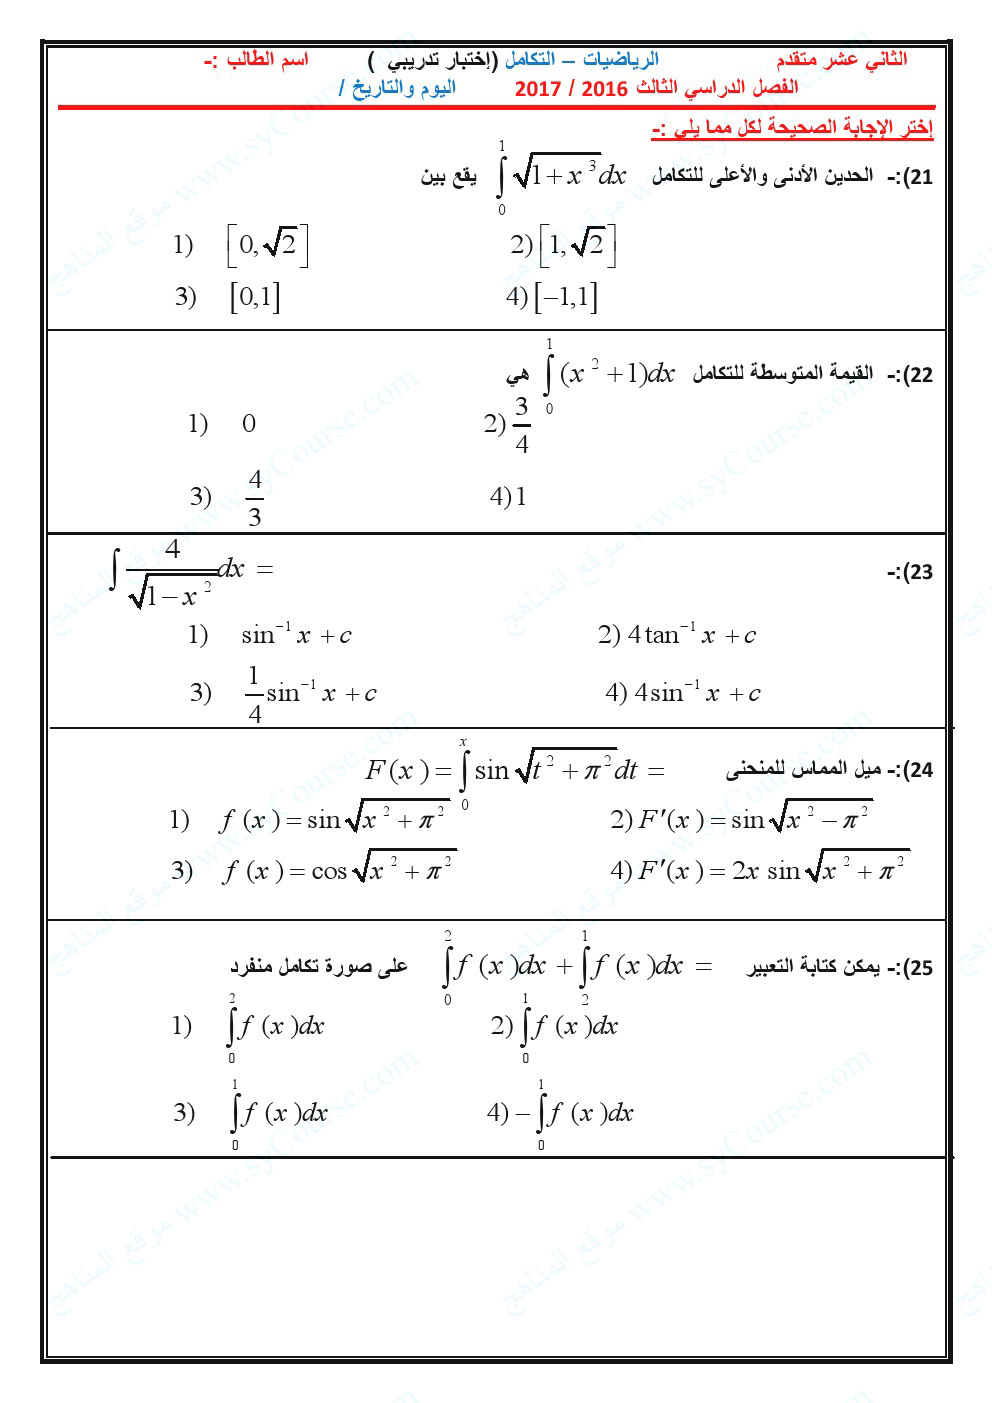 الثاني عشر متقدم الرياضيات – التكامل (إختبار تدريبي ) اسم الطالب :-
الفصل الدراسي الثالث 2016 / 2017 اليوم والتاريخ /
إختر الإجابة الصحيحة لكل مما يلي :-
21):- الحدين الأدنى والأعلى للتكامل ∫₀¹ √(1 + x³) dx يقع بين
1) [0, √2] 2) [1, √2]
3) [0,1] 4) [−1,1]
22):- القيمة المتوسطة للتكامل ∫₀¹ (x² + 1)dx هي
1) 0 2) 3/4
3) 4/3 4) 1
23):- ∫ 4/√(1 − x²) dx =
1) sin⁻¹ x + c 2) 4 tan⁻¹ x + c
3) 1/4 sin⁻¹ x + c 4) 4 sin⁻¹ x + c
24):- ميل المماس للمنحنى F(x) = ∫₀ˣ sin √(t² + π²) dt =
1) f(x) = sin √(x² + π²) 2) F′(x) = sin √(x² − π²)
3) f(x) = cos √(x² + π²) 4) F′(x) = 2x sin √(x² + π²)
25):- يمكن كتابة التعبير ∫₀² f(x)dx + ∫₂¹ f(x)dx = على صورة تكامل منفرد
1) ∫₀² f(x)dx 2) ∫₀¹ f(x)dx
3) ∫₀¹ f(x)dx 4) −∫₀¹ f(x)dx
موقع المناهج www.syCourse.com